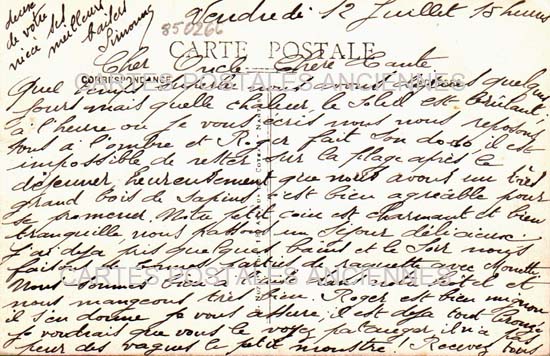 Vendredi 12 Juillet 15 heures
850266
CARTE POSTALE
CORRESPONDANCE
Cher Oncle Chère Tante
Quel temps superbe nous avons depuis quelques
jours mais quelle chaleur le Soleil est brûlant
à l'heure où je vous écris nous nous reposons
tous à l'ombre et Roger fait son dodo il est
impossible de rester sur la plage après le
déjeuner, heureusement que nous avons un très
grand bois de Sapins c'est bien agréable pour
se promener. Notre petit coin est charmant et bien
tranquille, nous passons un séjour délicieux
j'ai déjà pris quelques bains et le soir nous
faisons de longues parties de raquette avec
Nous sommes bien dans notre hôtel et
nous mangeons très bien. Roger est bien mignon
il s'en donne je vous assure, il est déjà tout bronzé
je voudrais que vous le voyez patauger il n'a pas
peur des vagues le petit monstre! Recevez tous
deux
de votre
nièce ses
meilleurs
baisers
Simone
CARTES POSTALES ANCIENNES
CARTES POSTALES ANCIENNES